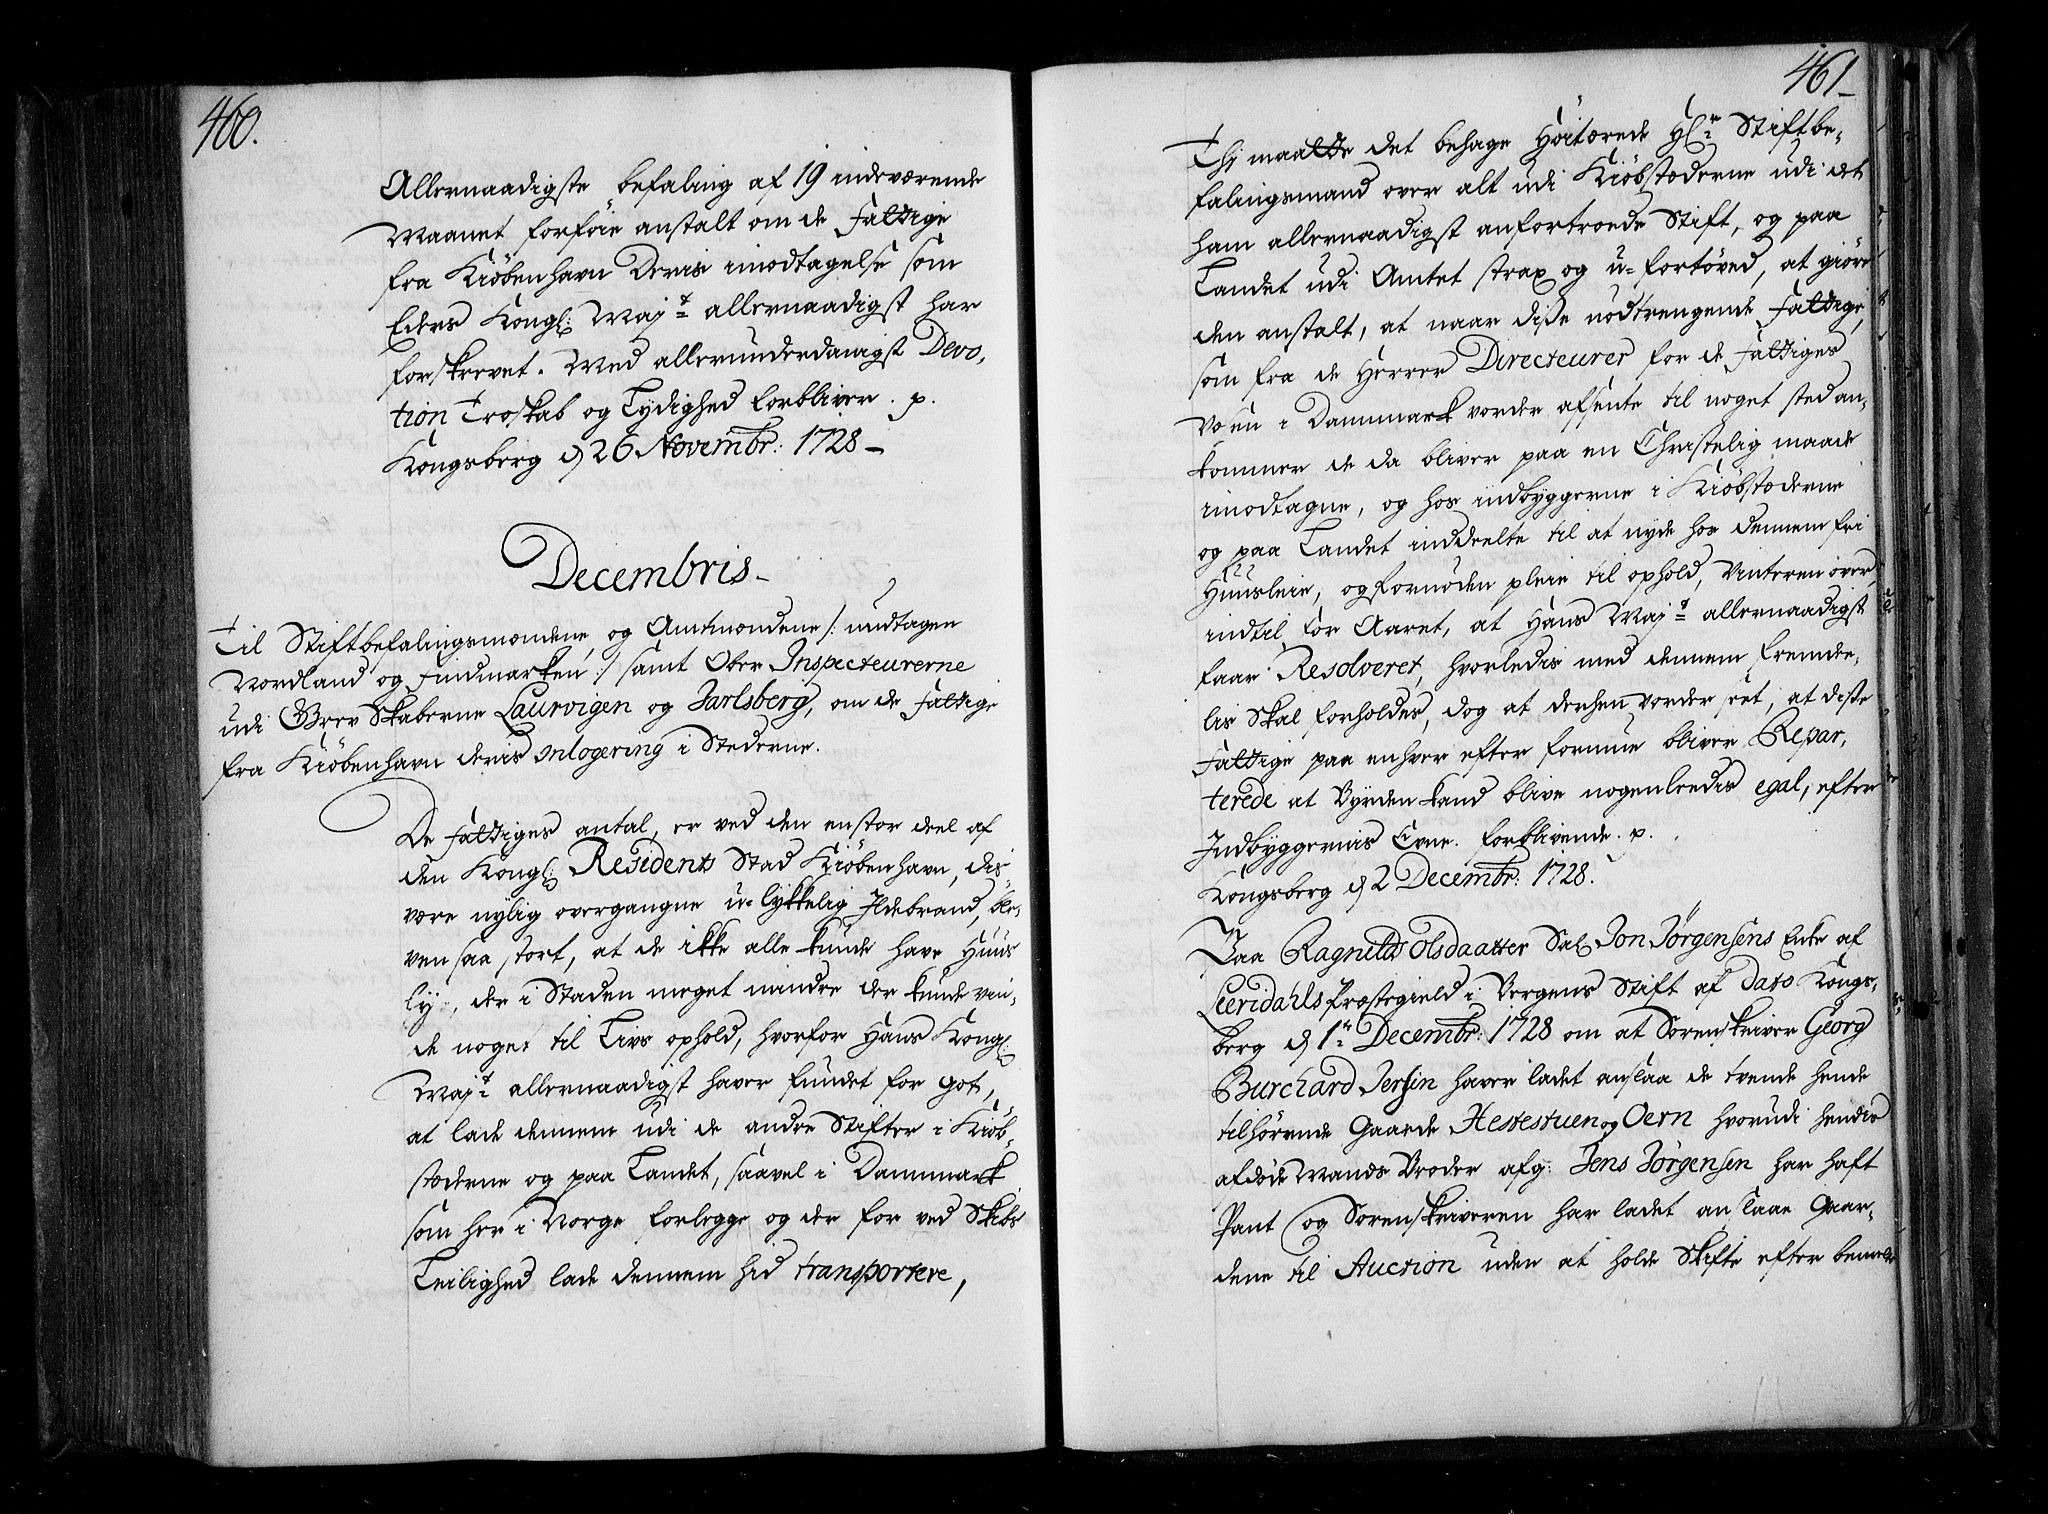 460.
Allernaadigste befaling af 19 indeværende
Maanet forføie anstalt om de Fattige
fra Kiöbenhavn Deris imodtagelse som
Eders Kongl: Maj:t allernaadigst har
forskrevet. Med allerunderdanigst Devo-
tion Troskab og Lydighed forbliver. p.
Kongsberg d 26 Novembr: 1728 -
Decembris -
Til Stiftbefalingsmændene og Amtmændene /: undtagen
Nordland og Findmarken :/ samt Ober Inspecteurerne
udi Grev Skaberne Laurvigen og Jarlsberg, om de Fattige
fra Kiöbenhavn deris Inlogering i Stæderne.
De Fattiges antal, er ved den en stor deel af
den Kongl: Residents Stad Kiöbenhavn, des-
være nylig overgangne u-lykkelig Ildebrand, ble-
ven saa stort, at de ikke alle kunde have Huus
ly, der i Staden meget mindre der kunde vin-
de noget til Livs ophold, hvorfor Hans Kongl:
Maj:t allernaadigst haver fundet for got,
at lade dennem udi de andre Stifter i Kiöb-
stæderne og paa Landet, saavel i Dannmark
som her i Norge forlegge og der for ved Skibs
Leilighed lade dennem hid transportere,
461 -
Thj maatte det behage Höitærede Hl:r Stiftbe-
falingsmand over alt udi Kiöbstæderne udi det
ham allernaadigst anfortroede Stift, og paa
Landet udi Amtet strax og u-fortöved, at giöre
den anstalt, at naar disse nödtrengende Fattige,
som fra de Herrer Directeurer for de Fattiges
Væsen i Dannmark vorder afsente til noget sted an-
kommer de da bliver paa en Christelig maade
imodtagne, og hos indbyggerne i Kiöbstæderne
og paa Landet inddeelte til at nyde hos dennem fri
Huusleie, og fornøden pleie til ophold, Vinteren over
indtil For Aaret, at Hans Maj:t allernaadigst
faar Resolveret, hvorledis med dennem fremde-
lis skal forholdes, dog at derhen vorder set, at disse
Fattige paa enhver efter formue bliver Repar-
terede at Byrden kand blive nogenleedis egal, efter
Indbyggernis Evne. Forblivende. p.
Kongsberg d 2 Decembr: 1728.
Paa Ragnilds Olsdaatter Sal Jon Jörgensens Enke af
Leeridahls Præstegield i Bergens Stift af Dato Kongs-
berg d 1:te Decembr: 1728 om at Sorenskriver Georg
Burchard Jersin haver ladet anslaa de tvende hende
tilhörende Gaarde Hestestuen og Oern hvorudi hendis
afdöde Mands Broder afg: Jens Jörgensen har haft
Pant og Sorenskriveren har ladet anslaae Gaar-
dene til Auction uden at holde Skifte efter bemelte